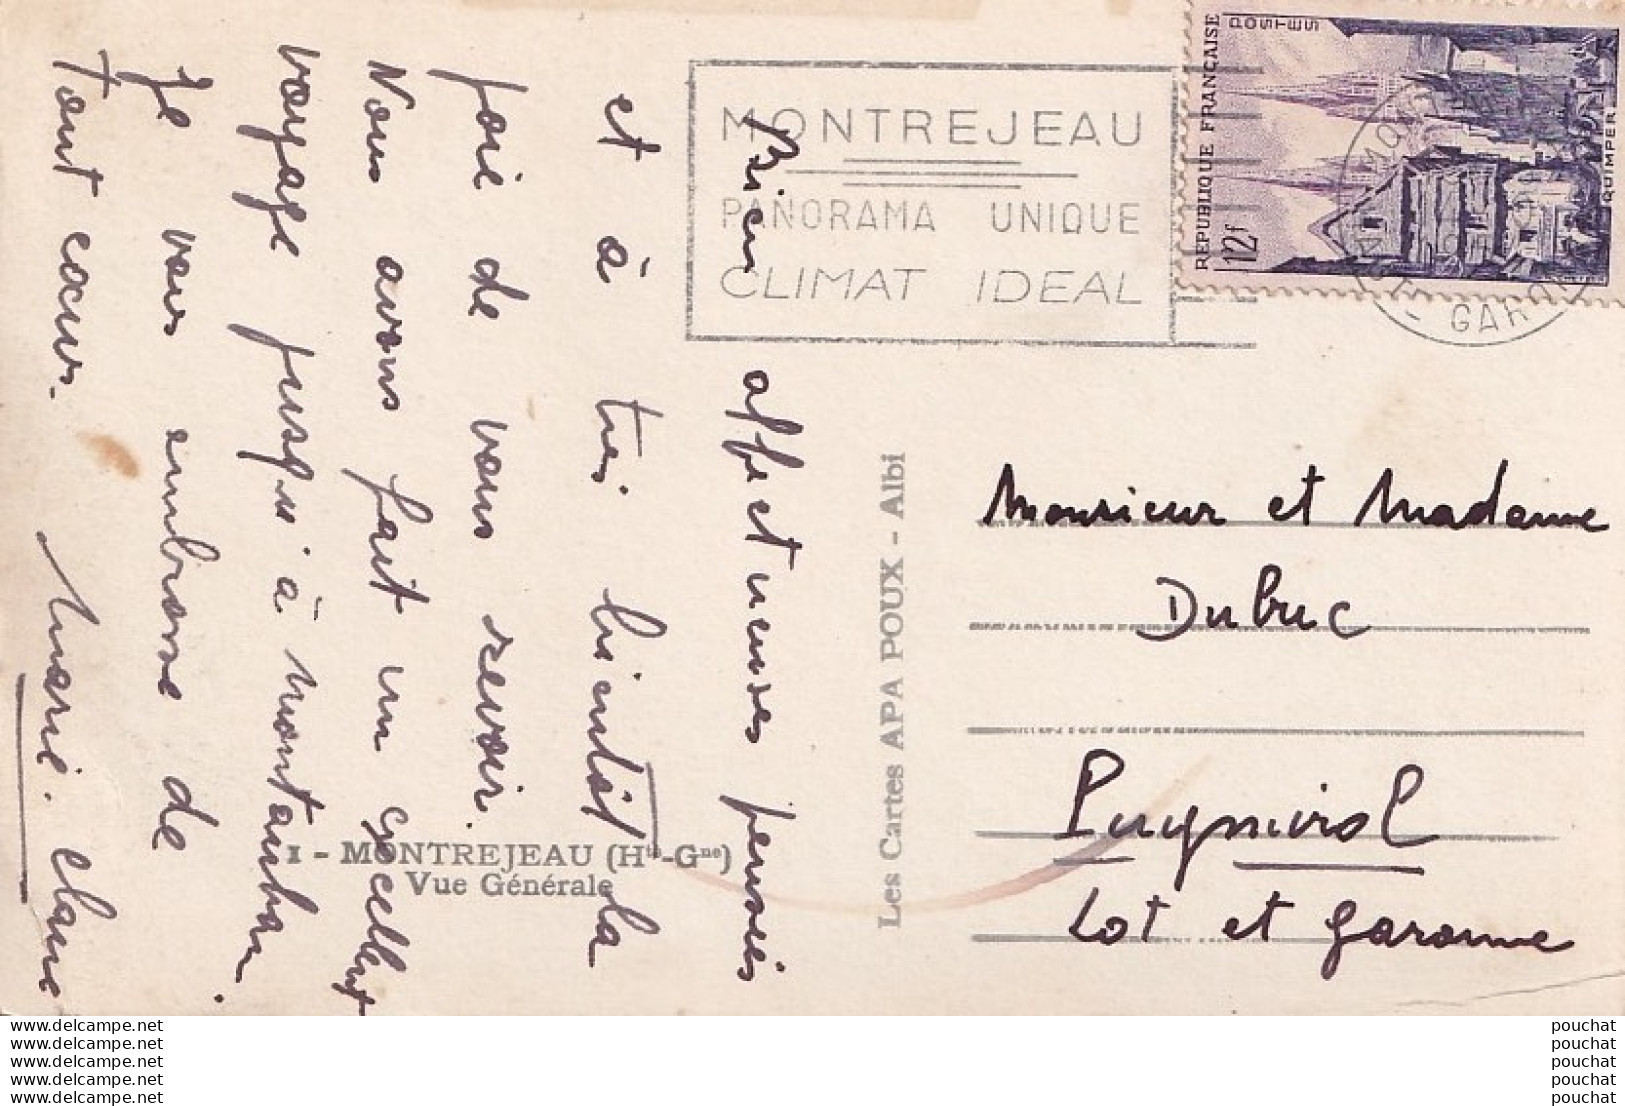 Bien affectueuses pensées
et à très bientôt la
joie de vous revoir.
Nous avons fait un excellent
voyage jusqu'à Montauban.
Je vous embrasse de
tout cœur.
Marie. Claire
MONTREJEAU
PANORAMA UNIQUE
CLIMAT IDEAL
POSTES
REPUBLIQUE FRANÇAISE
12f
QUIMPER
GARONNE
Les Cartes APA POUX - Albi
1 - MONTREJEAU (Hte-Gne)
Vue Générale
Monsieur et Madame
Dubruc
Puymirol
Lot et Garonne
www.delcampe.net
www.delcampe.net
www.delcampe.net
www.delcampe.net
www.delcampe.net
pouchat
pouchat
pouchat
pouchat
pouchat